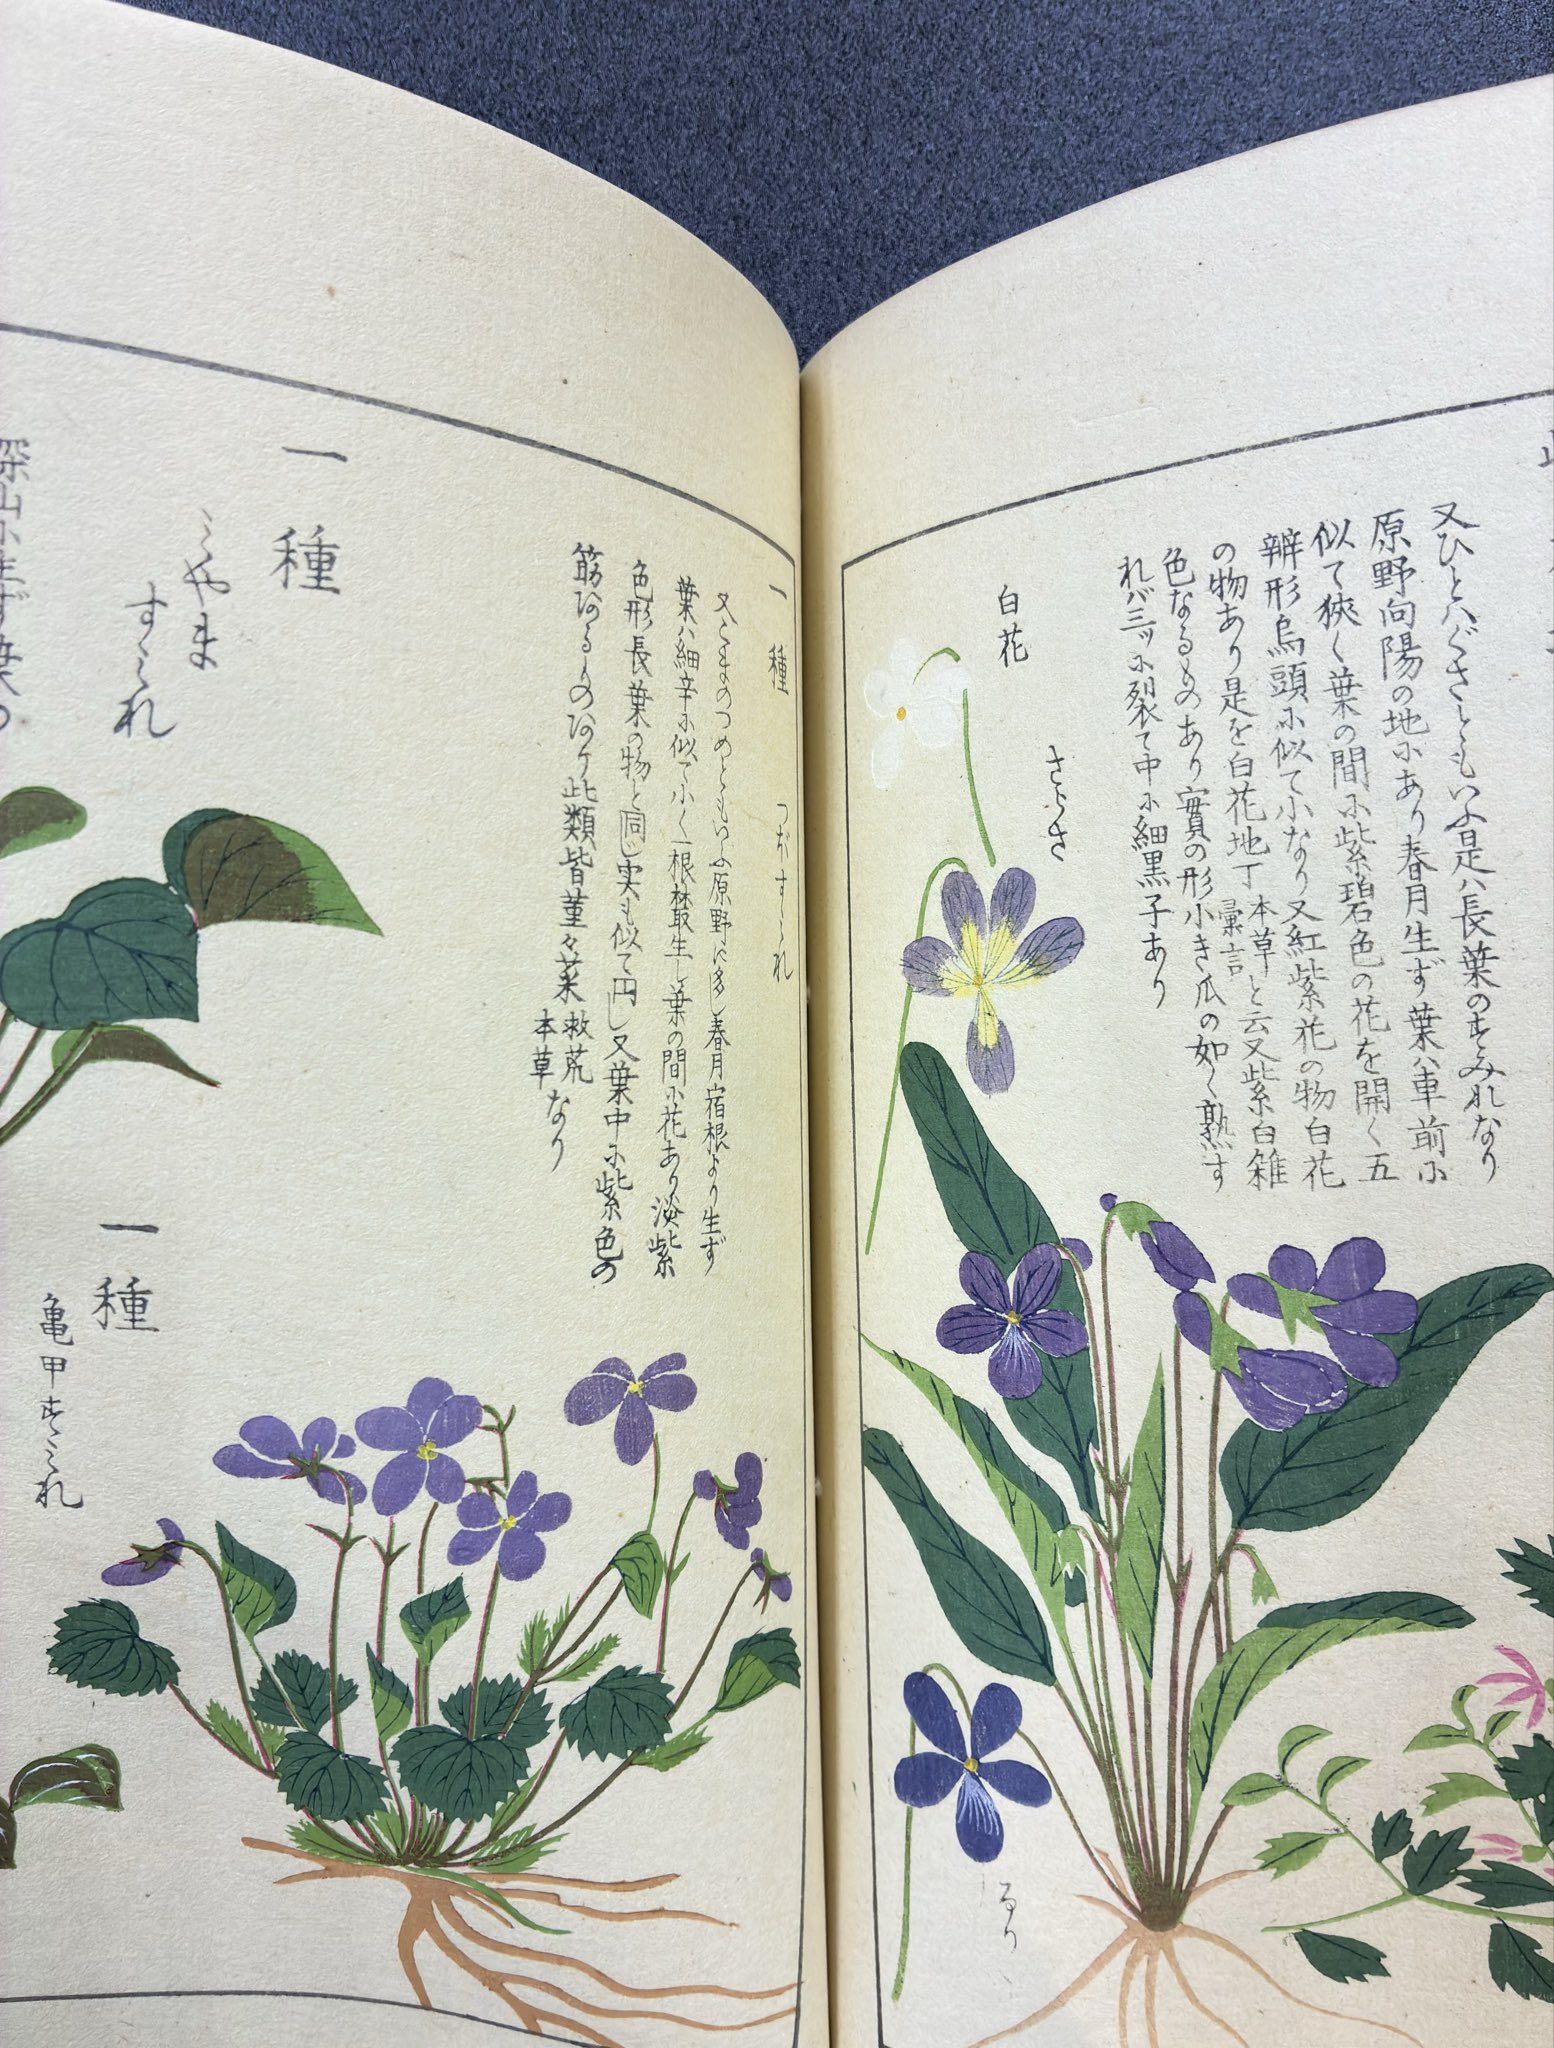 又ひとハぐさともいふ是ハ長葉のすみれなり
原野向陽の地にあり春月生ず葉ハ車前に
似て狭く葉の間に紫碧色の花を開く五
辨形烏頭に似て小なり又紅紫花の物白花
の物あり是を白花地丁本草彙言と云又紫白雑
色なるものあり實の形小き瓜の如く熟す
れバ三ツに裂て中に細黒子あり
白花
さらさ
るり
一種 つぼすゝれ
又こまのつめともいふ原野に多し春月宿根より生ず
葉ハ細辛に似て小く一根叢生し葉の間に花あり淡紫
色形長葉の物と同じ実も似て円し又葉中に紫色の
筋あるものあり此類皆菫々菜救荒本草なり
一種
みやま
すゝれ
一種
亀甲すみれ
深山に生ず葉の